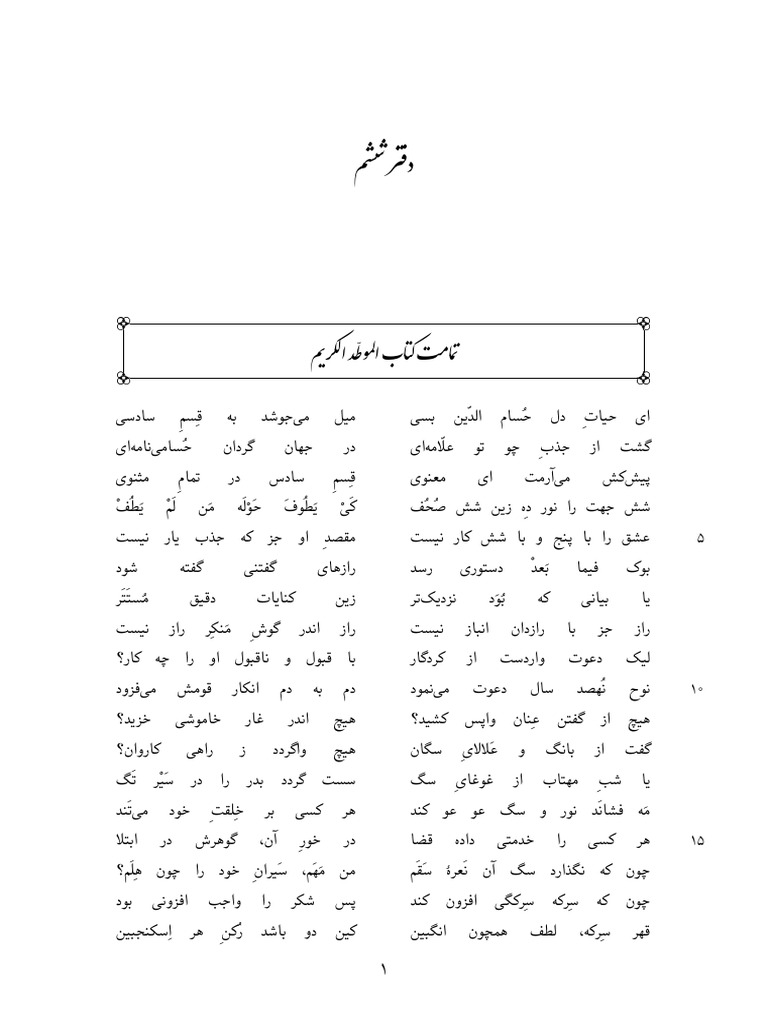 دفتر ششم
تمامت کتاب الموطّد الکریم
ای حیاتِ دل حُسام الدّین بسی میل می‌جوشد به قِسمِ سادسی
گشت از جذبِ چو تو علّامه‌ای در جهان گردان حُسامی‌نامه‌ای
پیش‌کش می‌آرمت ای معنوی قِسمِ سادس در تمامِ مثنوی
شش جهت را نور دِه زین شش صُحُف کَیْ یَطُوفَ حَوْلَه مَن لَمْ یَطُفْ
عشق را با پنج و با شش کار نیست مقصدِ او جز که جذب یار نیست ۵
بوک فیما بَعدْ دستوری رسد رازهای گفتنی گفته شود
یا بیانی که بُوَد نزدیک‌تر زین کنایات دقیق مُستَتَر
راز جز با رازدان انباز نیست راز اندر گوشِ مَنکِر راز نیست
لیک دعوت واردست از کردگار با قبول و ناقبول او را چه کار؟
نوح نُهصد سال دعوت می‌نمود دم به دم انکار قومش می‌فزود ۱۰
هیچ از گفتن عِنان واپس کشید؟ هیچ اندر غار خاموشی خزید؟
گفت از بانگ و عَلالایِ سگان هیچ واگردد ز راهی کاروان؟
یا شبِ مهتاب از غوغایِ سگ سست گردد بدر را در سَیْر تَگ
مَه فشانَد نور و سگ عو عو کند هر کسی بر خِلقتِ خود می‌تَند
هر کسی را خدمتی داده قضا در خورِ آن، گوهرش در ابتلا ۱۵
چون که نگذارد سگ آن نَعرهٔ سَقَم من مَهَم، سَیرانِ خود را چون هِلَم؟
چون که سِرکه سِرکگی افزون کند پس شکر را واجب افزونی بود
قهر سِرکه، لطف همچون انگبین کین دو باشد رُکنِ هر اِسکنجبین
۱